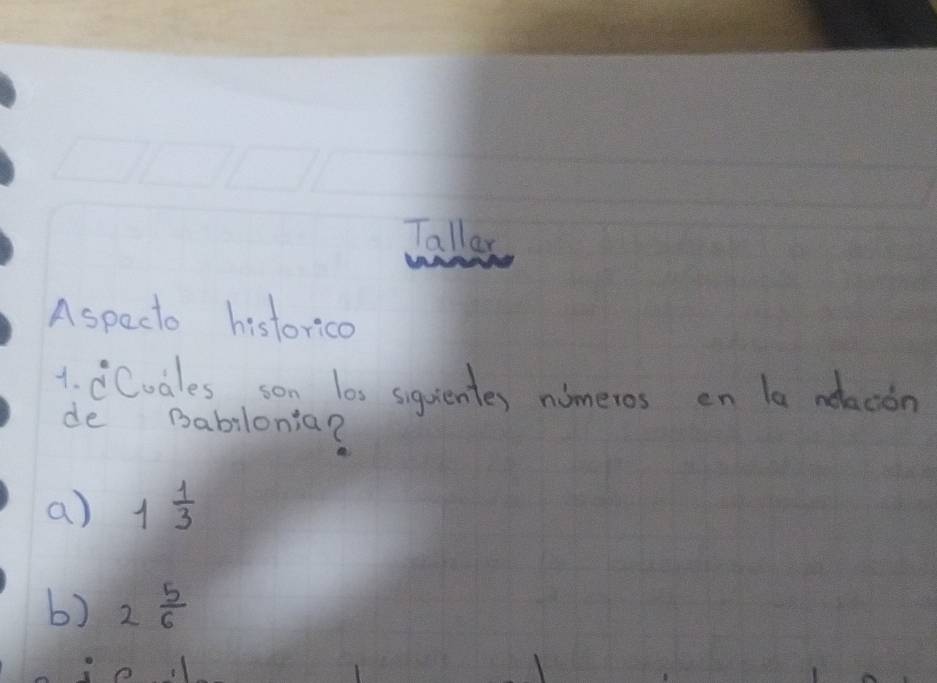 Taller
Aspecto historico
1. ¿Cuáles son los siguientes números en la notación
de Babilonia?
a) 1 1/3
b) 2 5/6